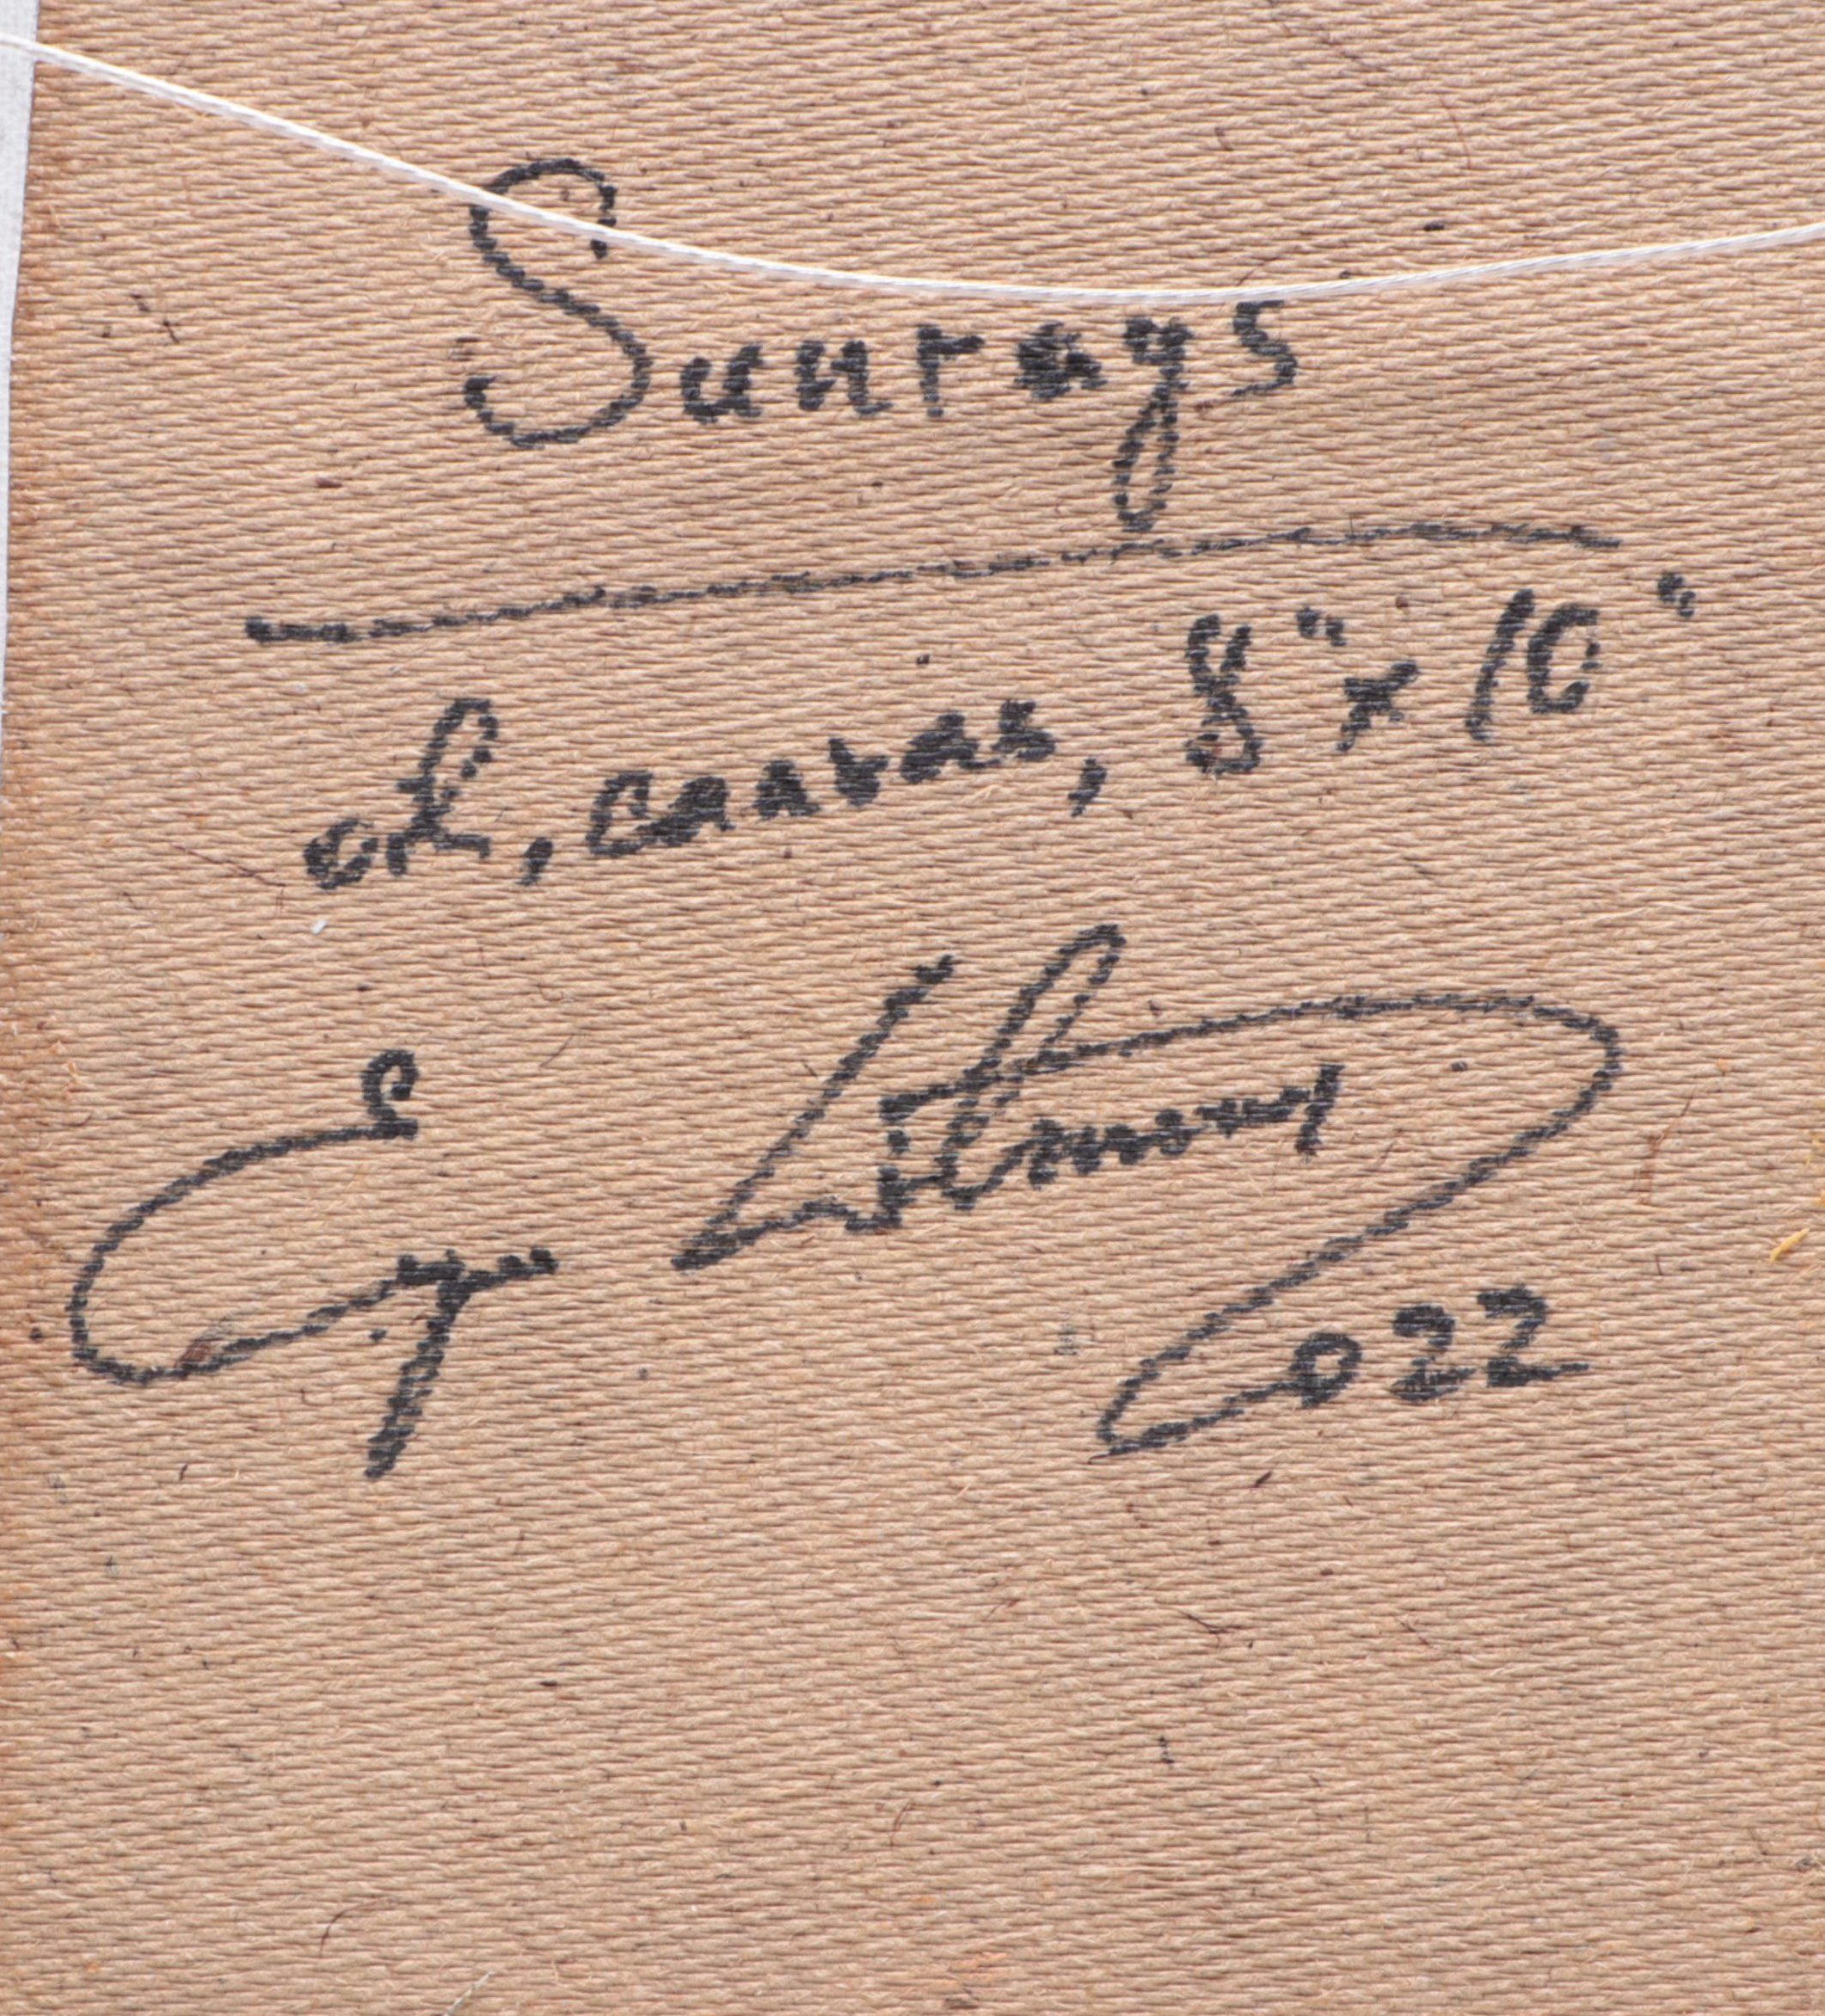 Sunrays
oil, canvas, 8" x 10"
022